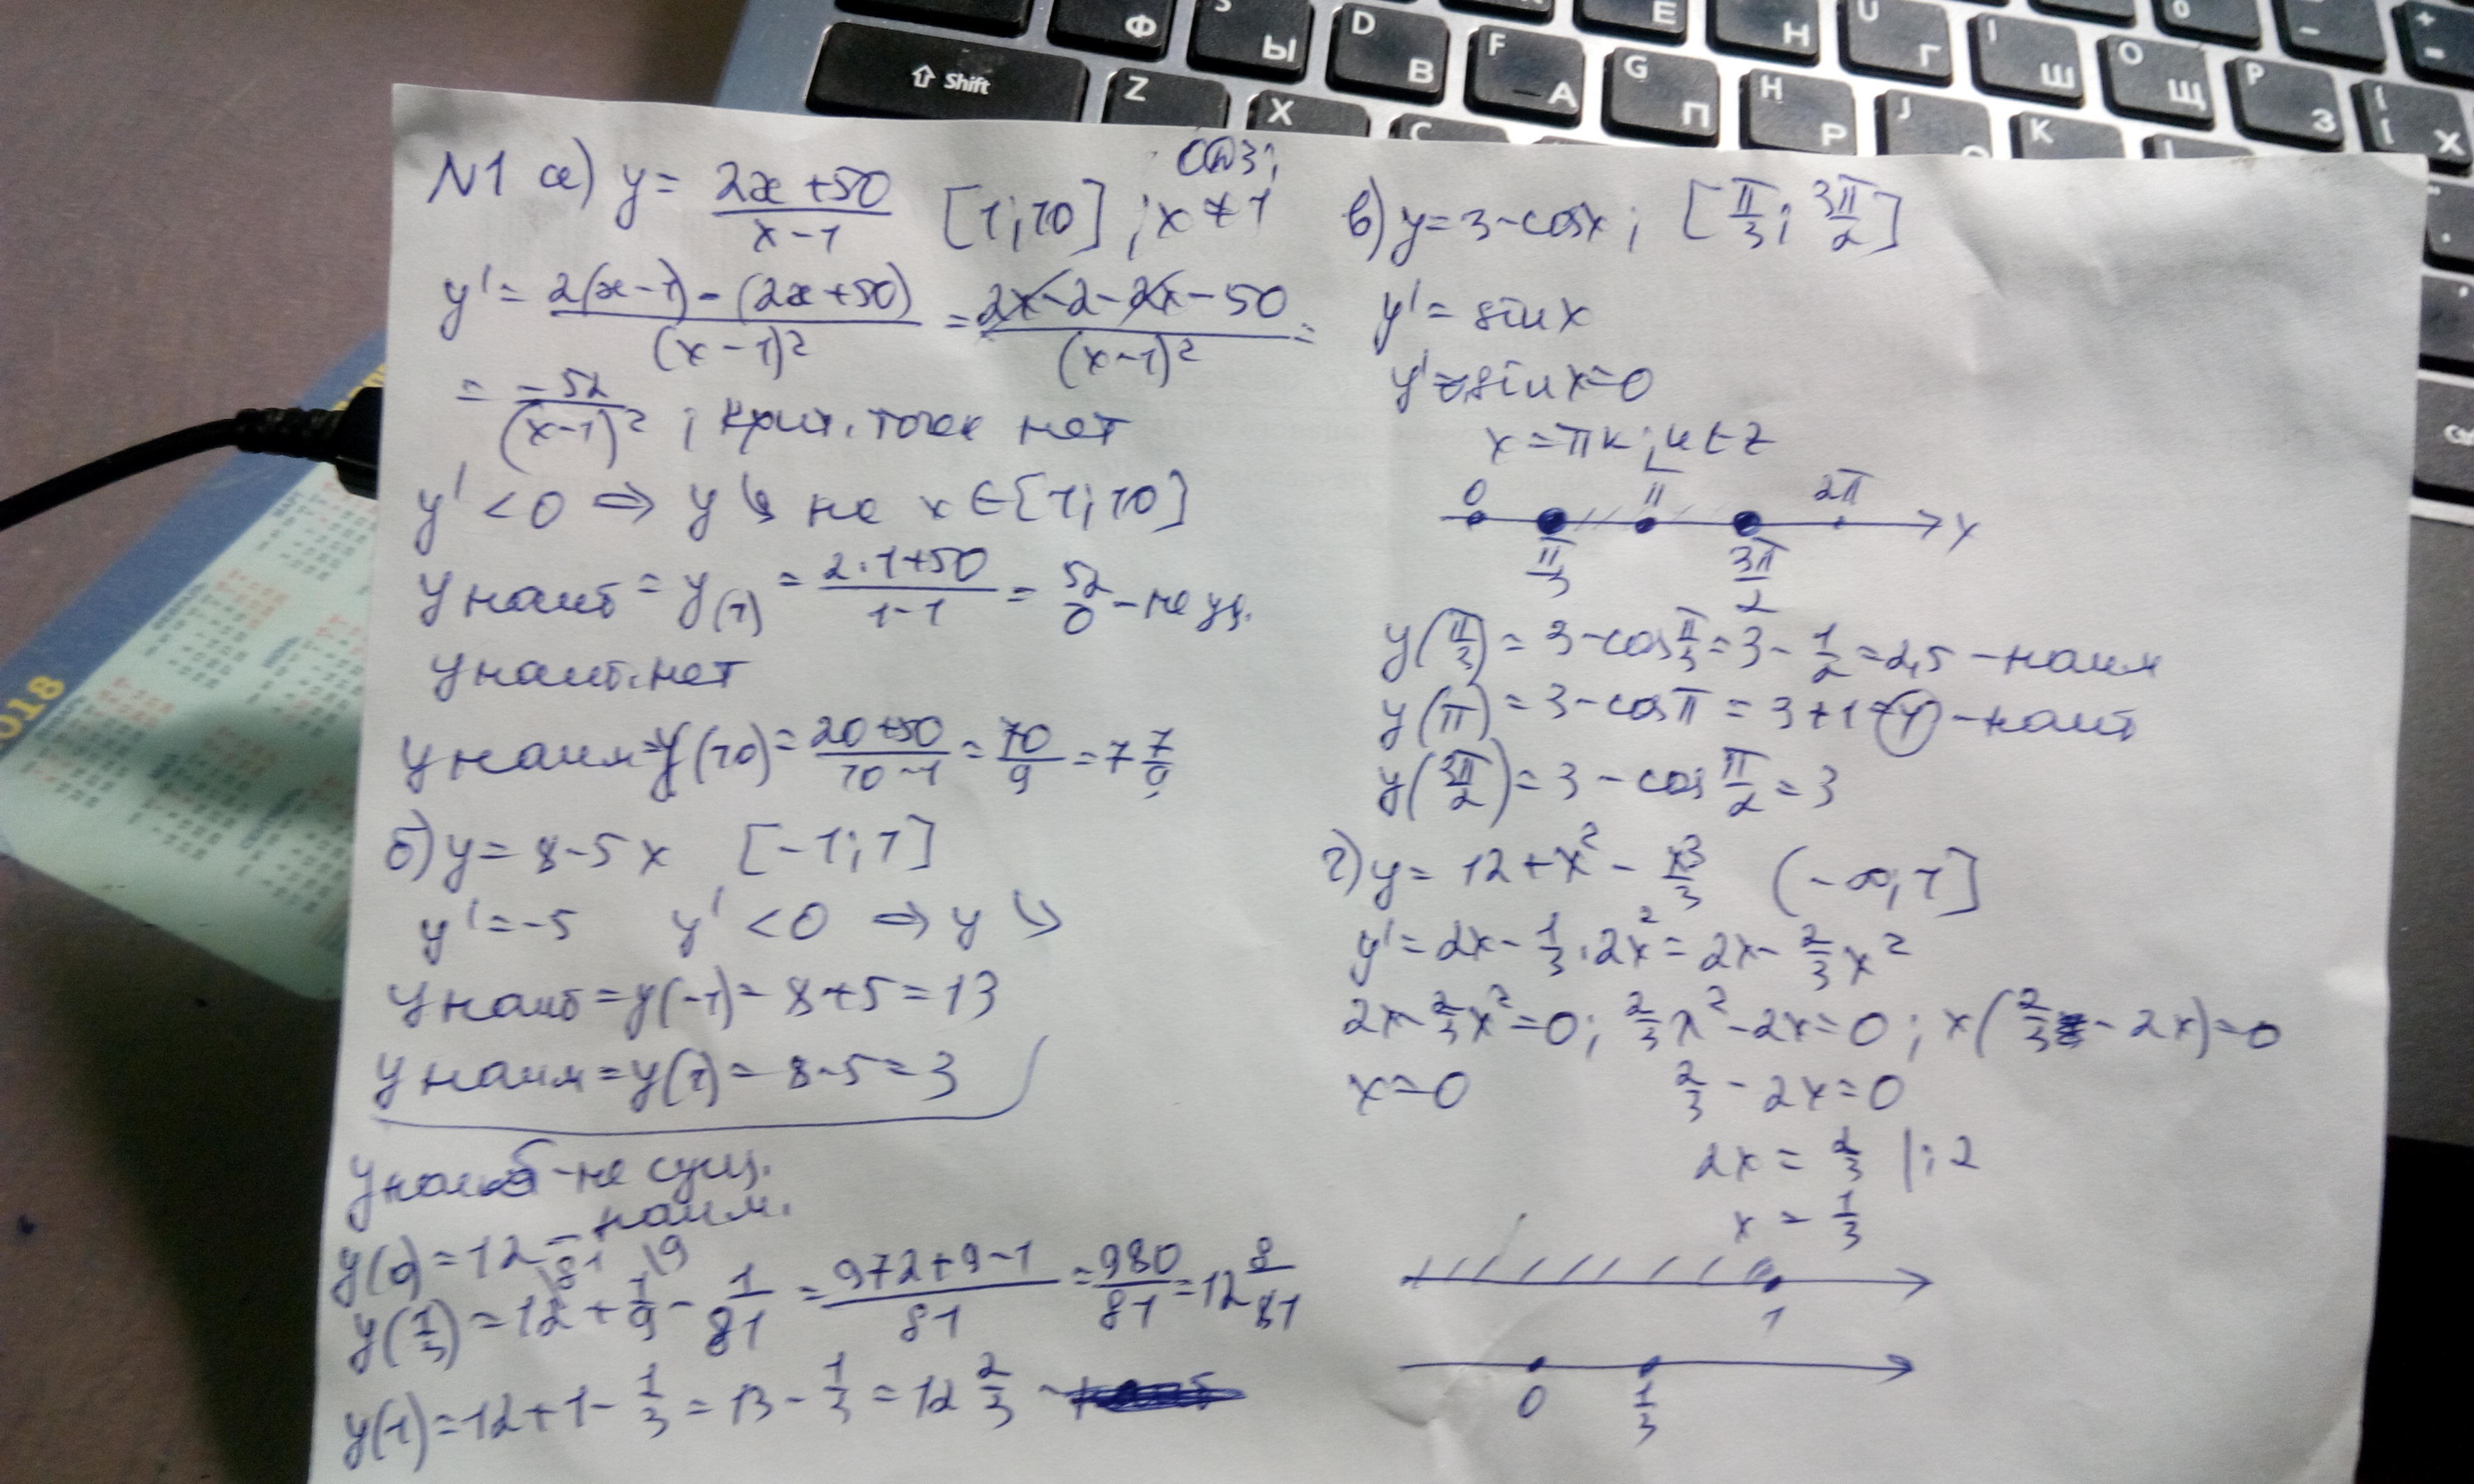 Ф
S Ы
D В
F А
G П
E
H
U Г
I Ш
O Щ
P З
Х
Shift
Z
X
C
H Р
J
K
2018
N1 а) y = (2x+50)/(x-1) [1;10] ; x ≠ 1
ОДЗ:
y' = (2(x-1) - (2x+50))/(x-1)² = (2x-2-2x-50)/(x-1)² =
= -52/(x-1)² ; крит. точек нет
y' < 0 ⇒ y ↘ на x ∈ [1;10]
y наиб = y(1) = (2·1+50)/(1-1) = 52/0 - не сущ.
y наиб. нет
y наим = y(10) = (20+50)/(10-1) = 70/9 = 7 7/9
б) y = 8-5x [-1;1]
y' = -5 y' < 0 ⇒ y ↘
y наиб = y(-1) = 8+5 = 13
y наим = y(1) = 8-5 = 3
y наиб - не сущ.
y(0) = 12 - наим.
y(1/3) = 12\81 + 1/9\9 - 1/81 = (972+9-1)/81 = 980/81 = 12 8/81
y(1) = 12+1-1/3 = 13-1/3 = 12 2/3 -
в) y = 3-cosx ; [π/3; 3π/2]
y' = sinx
y' = sinx = 0
x = πk ; k ∈ Z
0 π 2π
π/3 3π/2 x
y(π/3) = 3-cos π/3 = 3 - 1/2 = 2,5 - наим
y(π) = 3-cosπ = 3+1 = 4 - наиб
y(3π/2) = 3 - cos π/2 = 3
г) y = 12+x² - x³/3 (-∞;1]
y' = 2x - 1/3·2x² = 2x - 2/3 x²
2x - 2/3 x² = 0; 2/3 x² - 2x = 0 ; x(2/3 - 2x) = 0
x = 0 2/3 - 2x = 0
2x = 2/3 |:2
x = 1/3
1
0 1/3